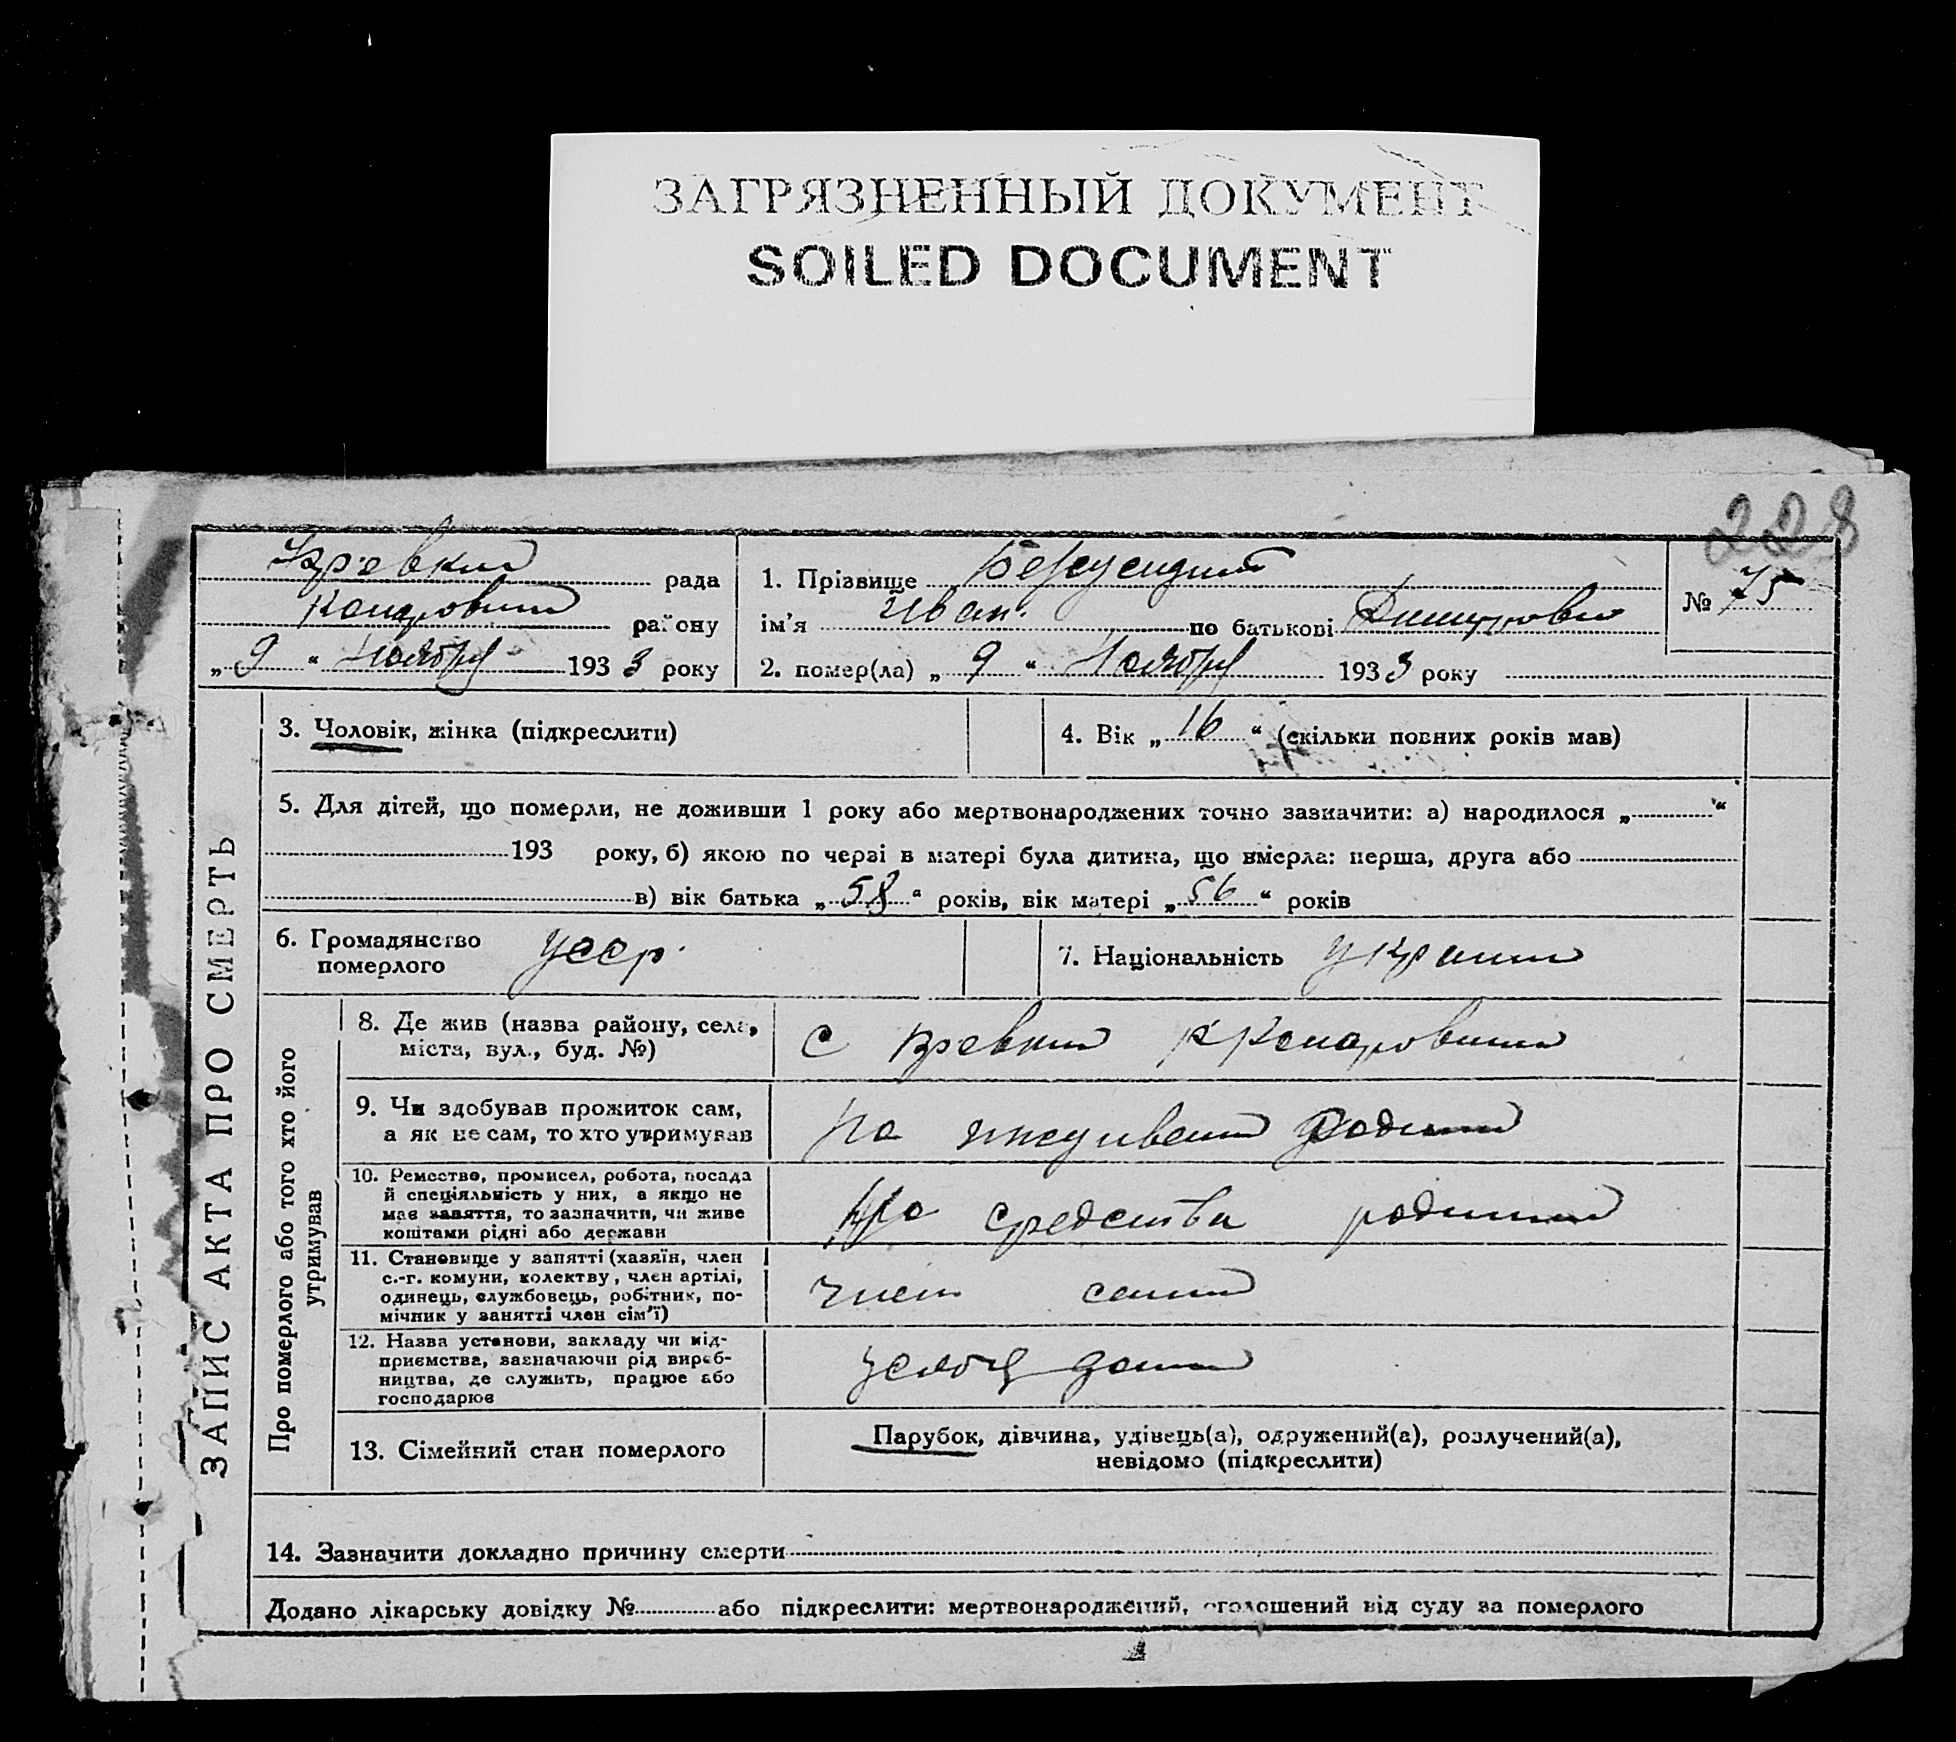 ЗАГРЯЗНЕННЫЙ ДОКУМЕНТ
SOILED DOCUMENT
228
рада
району
„ 9 “ Ноября 1933 року
1. Прізвище
ім'я Иван. по батькові
2. помер(ла) „ 9 “ Ноября 1933 року
№ 75
ЗАПИС АКТА ПРО СМЕРТЬ
3. Чоловік, жінка (підкреслити)
4. Вік „ 16 “ (скільки повних років мав)
5. Для дітей, що померли, не доживши 1 року або мертвонароджених точно зазначити: а) народилося „ “
193 року, б) якою по черзі в матері була дитина, що вмерла: перша, друга або
в) вік батька „ 58 “ років, вік матері „ 56 “ років
6. Громадянство
померлого
Усср.
7. Національність
Про померлого або того хто його
утримував
8. Де жив (назва району, села,
міста, вул., буд. №)
с
9. Чи здобував прожиток сам,
а як не сам, то хто утримував
На
10. Ремество, промисел, робота, посада
й спеціяльність у них, а якщо не
має заняття, то зазначити, чи живе
коштами рідні або держави
На средства родини
11. Становище у занятті (хазяїн, член
с.-г. комуни, колективу, член артілі,
одинець, службовець, робітник, по-
мічник у занятті член сім'ї)
член
12. Назва установи, закладу чи під-
приємства, зазначаючи рід вироб-
ництва, де служить, працює або
господарює
13. Сімейний стан померлого
Парубок, дівчина, удівець(а), одружений(а), розлучений(а),
невідомо (підкреслити)
14. Зазначити докладно причину смерти
Додано лікарську довідку № або підкреслити: мертвонароджений, оголошений від суду за померлого